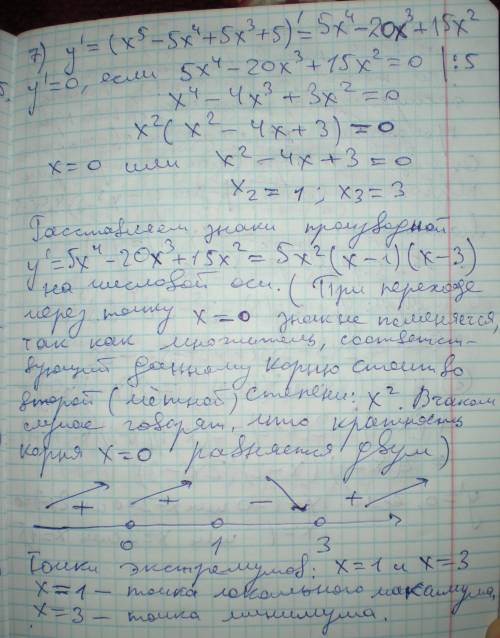 7) y' = (x⁵ - 5x⁴ + 5x³ + 5)' = 5x⁴ - 20x³ + 15x²
y' = 0, если 5x⁴ - 20x³ + 15x² = 0 |:5
x⁴ - 4x³ + 3x² = 0
x²(x² - 4x + 3) = 0
x = 0 или x² - 4x + 3 = 0
x₂ = 1; x₃ = 3
Расставляем знаки производной
y' = 5x⁴ - 20x³ + 15x² = 5x²(x - 1)(x - 3)
на числовой оси. (При переходе
через точку x = 0 знак не поменяется,
так как множитель, соответст-
вующий данному корню стоит во
второй (чётной) степени: x². В таком
случае говорят, что кратность
корня x = 0 равняется двум)
+ + - +
0 1 3
Точки экстремумов: x = 1 и x = 3
x = 1 - точка локального максимума,
x = 3 - точка минимума.